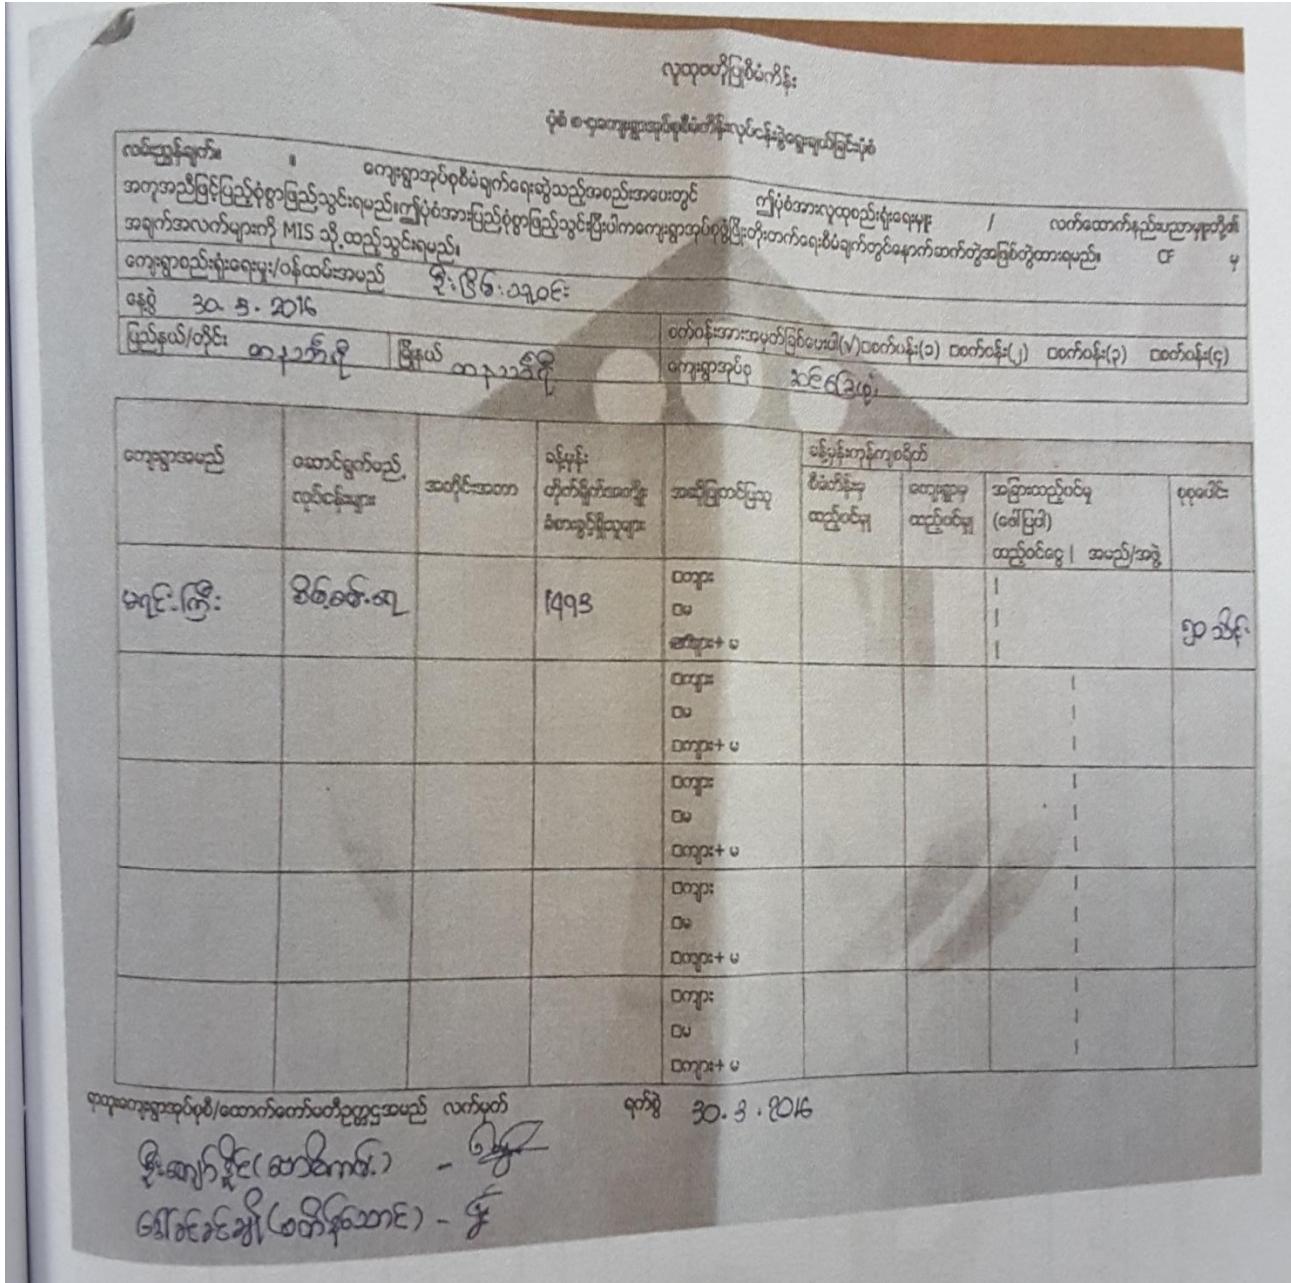 လူထုဗဟိုပြုစီမံကိန်း
ပုံစံ စ-၄ကျေးရွာအုပ်စုစီမံကိန်းလုပ်ငန်းခွဲရွေးချယ်ခြင်းပုံစံ
လမ်းညွှန်ချက်။ ။ ကျေးရွာအုပ်စုစီမံချက်ရေးဆွဲသည့်အစည်းအဝေးတွင် ဤပုံစံအားလူထုစည်းရုံးရေးမှူး / လက်ထောက်နည်းပညာမှူးတို့၏
အကူအညီဖြင့်ပြည့်စုံစွာဖြည့်သွင်းရမည်။ဤပုံစံအားပြည့်စုံစွာဖြည့်သွင်းပြီးပါကကျေးရွာအုပ်စုဖွံ့ဖြိုးတိုးတက်ရေးစီမံချက်တွင်နောက်ဆက်တွဲအဖြစ်တွဲထားရမည်။ CF မှ
အချက်အလက်များကို MIS သို့ထည့်သွင်းရမည်။
ကျေးရွာစည်းရုံးရေးမှူး/ဝန်ထမ်းအမည် ဦးငြိမ်း
နေ့စွဲ 30.3.2016
ပြည်နယ်/တိုင်း တနင်္သာရီ မြို့နယ် တနင်္သာရီ စက်ဝန်းအားအမှတ်ခြစ်ပေးပါ(√)□စက်ဝန်း(၁) □စက်ဝန်း(၂) □စက်ဝန်း(၃) □စက်ဝန်း(၄)
ကျေးရွာအုပ်စု
ကျေးရွာအမည် ဆောင်ရွက်မည့် လုပ်ငန်းများ အတိုင်းအတာ ခန့်မှန်း တိုက်ရိုက်အကျိုး ခံစားခွင့်ရှိသူများ အဆိုပြုတင်ပြသူ ခန့်မှန်းကုန်ကျစရိတ်
စီမံကိန်းမှ ထည့်ဝင်မှု ကျေးရွာမှ ထည့်ဝင်မှု အခြားထည့်ဝင်မှု (ဖေါ်ပြပါ) ထည့်ဝင်ငွေ | အမည်/အဖွဲ့ စုစုပေါင်း
မရင်းကြီး 1493 □ကျား
□မ
ကျား+ မ ၅၀ သိန်း
□ကျား
□မ
□ကျား+ မ
□ကျား
□မ
□ကျား+ မ
□ကျား
□မ
□ကျား+ မ
□ကျား
□မ
□ကျား+ မ
ရာထူးကျေးရွာအုပ်စုစီ/ထောက်ကော်မတီဥက္ကဋ္ဌအမည် လက်မှတ် ရက်စွဲ 30.3.2016
ဦးကျော်နိုင်
ဒေါ်ခင်ခင်ချို